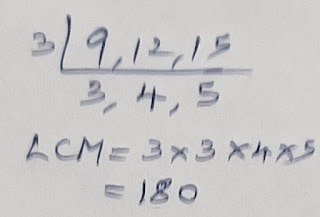 3 | 9, 12, 15
3, 4, 5
LCM = 3 × 3 × 4 × 5
= 180